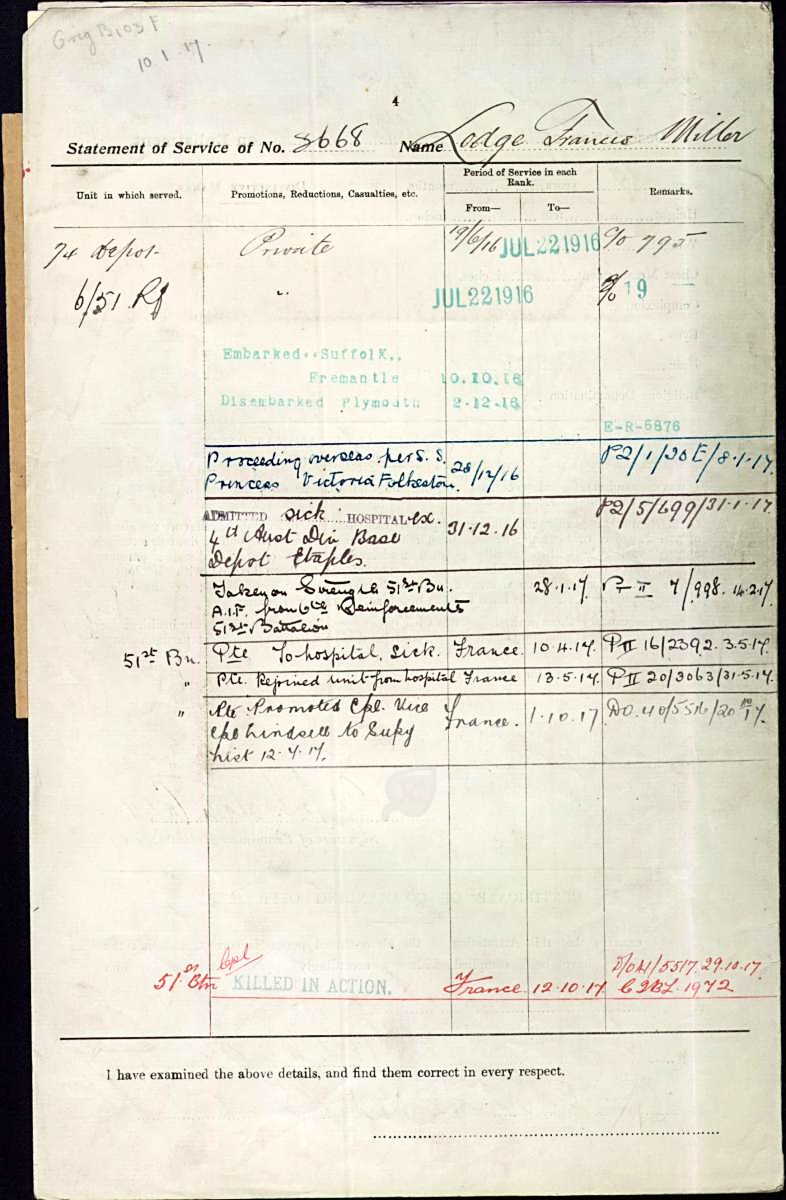 Orig B103 F
10.1.17.
4
Statement of Service of No. 3668 Name Lodge Francis Miller
Unit in which served.
Promotions, Reductions, Casualties, etc.
Period of Service in each Rank.
From—
To—
Remarks.
74 Depot. Private 19/6/16 JUL 22 1916 C/o 795
6/51 Rf " JUL 22 1916 C/o 19
Embarked Suffolk,
Fremantle 10.10.16
Disembarked Plymouth 2-12-16
E-R-6876
Proceeding overseas per S.S. P2/1/20E/8.1.17.
Princess Victoria Folkestone 28/12/16
ADMITTED sick HOSPITAL ex. P2/5/699/31.1.17.
4th Aust Div Base 31.12.16
Depot Etaples.
Taken on Strength 51st Bn. 28.1.17. Pt II 7/998. 14.2.17.
A.I.F. from 6th Reinforcements
51st Battalion
51st Bn. Pte To hospital, Sick. France. 10.4.17. P II 16/2392. 3.5.17.
" Pte. Rejoined unit from hospital France 13.5.17. P II 20/3063/31.5.17.
" Pte Promoted Cpl. Vice France. 1.10.17. DO. 40/5516/20
Cpl Lindsell to Supy
list 12.7.17.
51st Btn Cpl KILLED IN ACTION. France. 12.10.17. D/O 41/5517. 29.10.17.
1972
I have examined the above details, and find them correct in every respect.